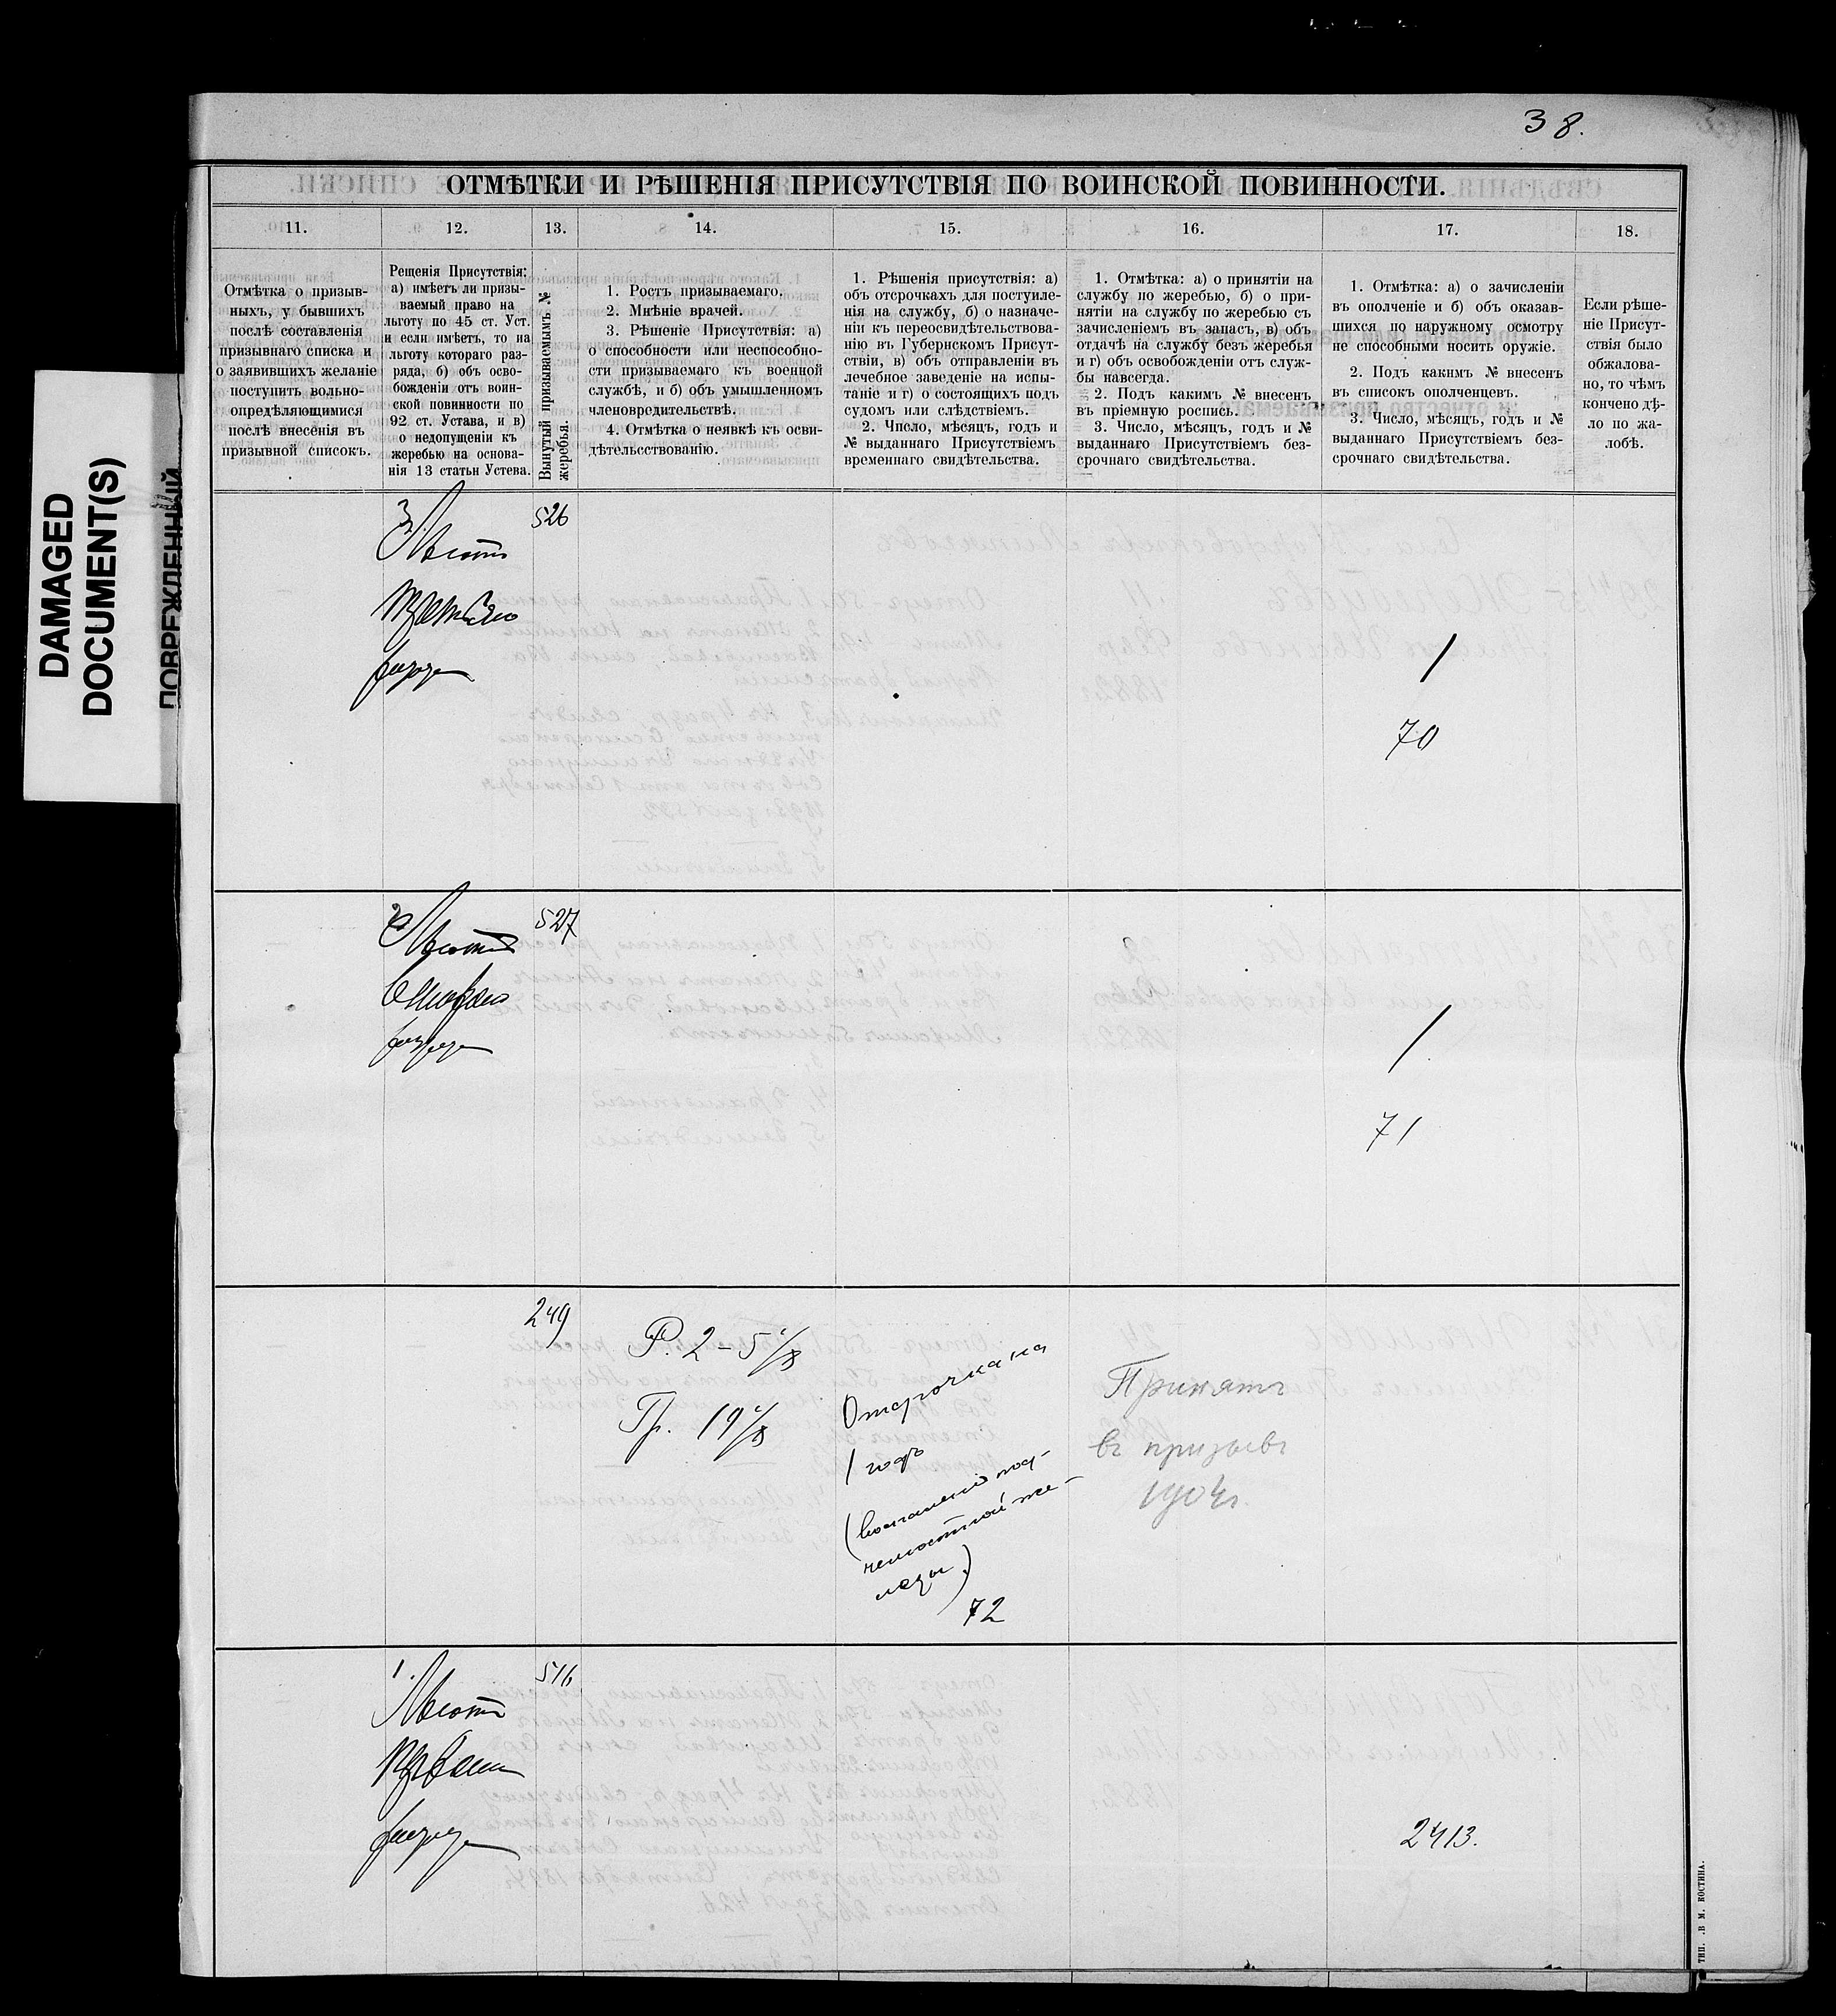 38.
DAMAGED
DOCUMENT(S)
ПОВРЕЖДЕННЫЙ
ОТМѢТКИ И РѢШЕНІЯ ПРИСУТСТВІЯ ПО ВОИНСКОЙ ПОВИННОСТИ.
11.
12.
13.
14.
15.
16.
17.
18.
Отмѣтка о призыв-
ныхъ, у бывшихъ
послѣ составленія
призывнаго списка и
о заявившихъ желаніе
поступить вольно-
опредѣляющимися
послѣ внесенія въ
призывной списокъ.
Рещенія Присутствія:
а) имѣетъ ли призы-
ваемый право на
льготу по 45 ст. Уст.
и если имѣетъ, то на
льготу котораго раз-
ряда, б) объ осво-
божденіи отъ воин-
ской повинности по
92 ст. Устава, и в)
о недопущеніи къ
жеребью на основа-
нія 13 статьи Устева.
Вынутый призываемымъ №
жеребья.
1. Ростъ призываемаго.
2. Мнѣніе врачей.
3. Рѣшеніе Присутствія: а)
о способности или неспособно-
сти призываемаго къ военной
службѣ, и б) объ умышленномъ
членовредительствѣ.
4. Отмѣтка о неявкѣ къ осви-
дѣтельсствованію.
1. Рѣшенія присутствія: а)
объ отсрочкахъ для постуиле-
нія на службу, б) о назначе-
ніи къ переосвидѣтельствова-
нію въ Губернскомъ Присут-
ствіи, в) объ отправленіи въ
лечебное заведеніе на испы-
таніе и г) о состоящихъ подъ
судомъ или слѣдствіемъ.
2. Число, мѣсяцъ, годъ и
№ выданнаго Присутствіемъ
временнаго свидѣтельства.
1. Отмѣтка: а) о принятіи на
службу по жеребью, б) о при-
нятіи на службу по жеребью съ
зачисленіемъ въ запасъ, в) объ
отдачѣ на службу безъ жеребья
и г) объ освобожденіи отъ служ-
бы навсегда.
2. Подъ какимъ № внесенъ
въ пріемную роспись.
3. Число, мѣсяцъ, годъ и №
выданнаго Присутствіемъ без-
срочнаго свидѣтельства.
1. Отмѣтка: а) о зачисленіи
въ ополченіе и б) объ оказав-
шихся по наружному осмотру
не способными носить оружіе.
2. Подъ какимъ № внесенъ
въ списокъ ополченцевъ.
3. Число, мѣсяцъ, годъ и №
выданнаго Присутствіемъ без-
срочнаго свидѣтельства.
Если рѣше-
ніе Присут-
ствія было
обжалова-
но, то чѣмъ
кончено дѣ-
ло по жа-
лобѣ.
3
Льгота
третьяго
разряда
526
/
70
2
Льгота
второго
разряда
527
/
71
249
Р. 2 - 5 4/8
Гр. 19 4/8
Отсрочка на
1 годъ
(воспаленіе под-
челюстной же-
лезы)
72
Принятъ
въ призывъ
1904г.
1.
Льгота
перваго
разряда
516
2413.
ТИП. В М. КОСТИНА.